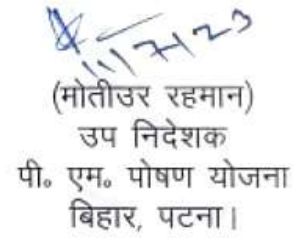 11/7/23
(मोतीउर रहमान)
उप निदेशक
पी० एम० पोषण योजना
बिहार, पटना।